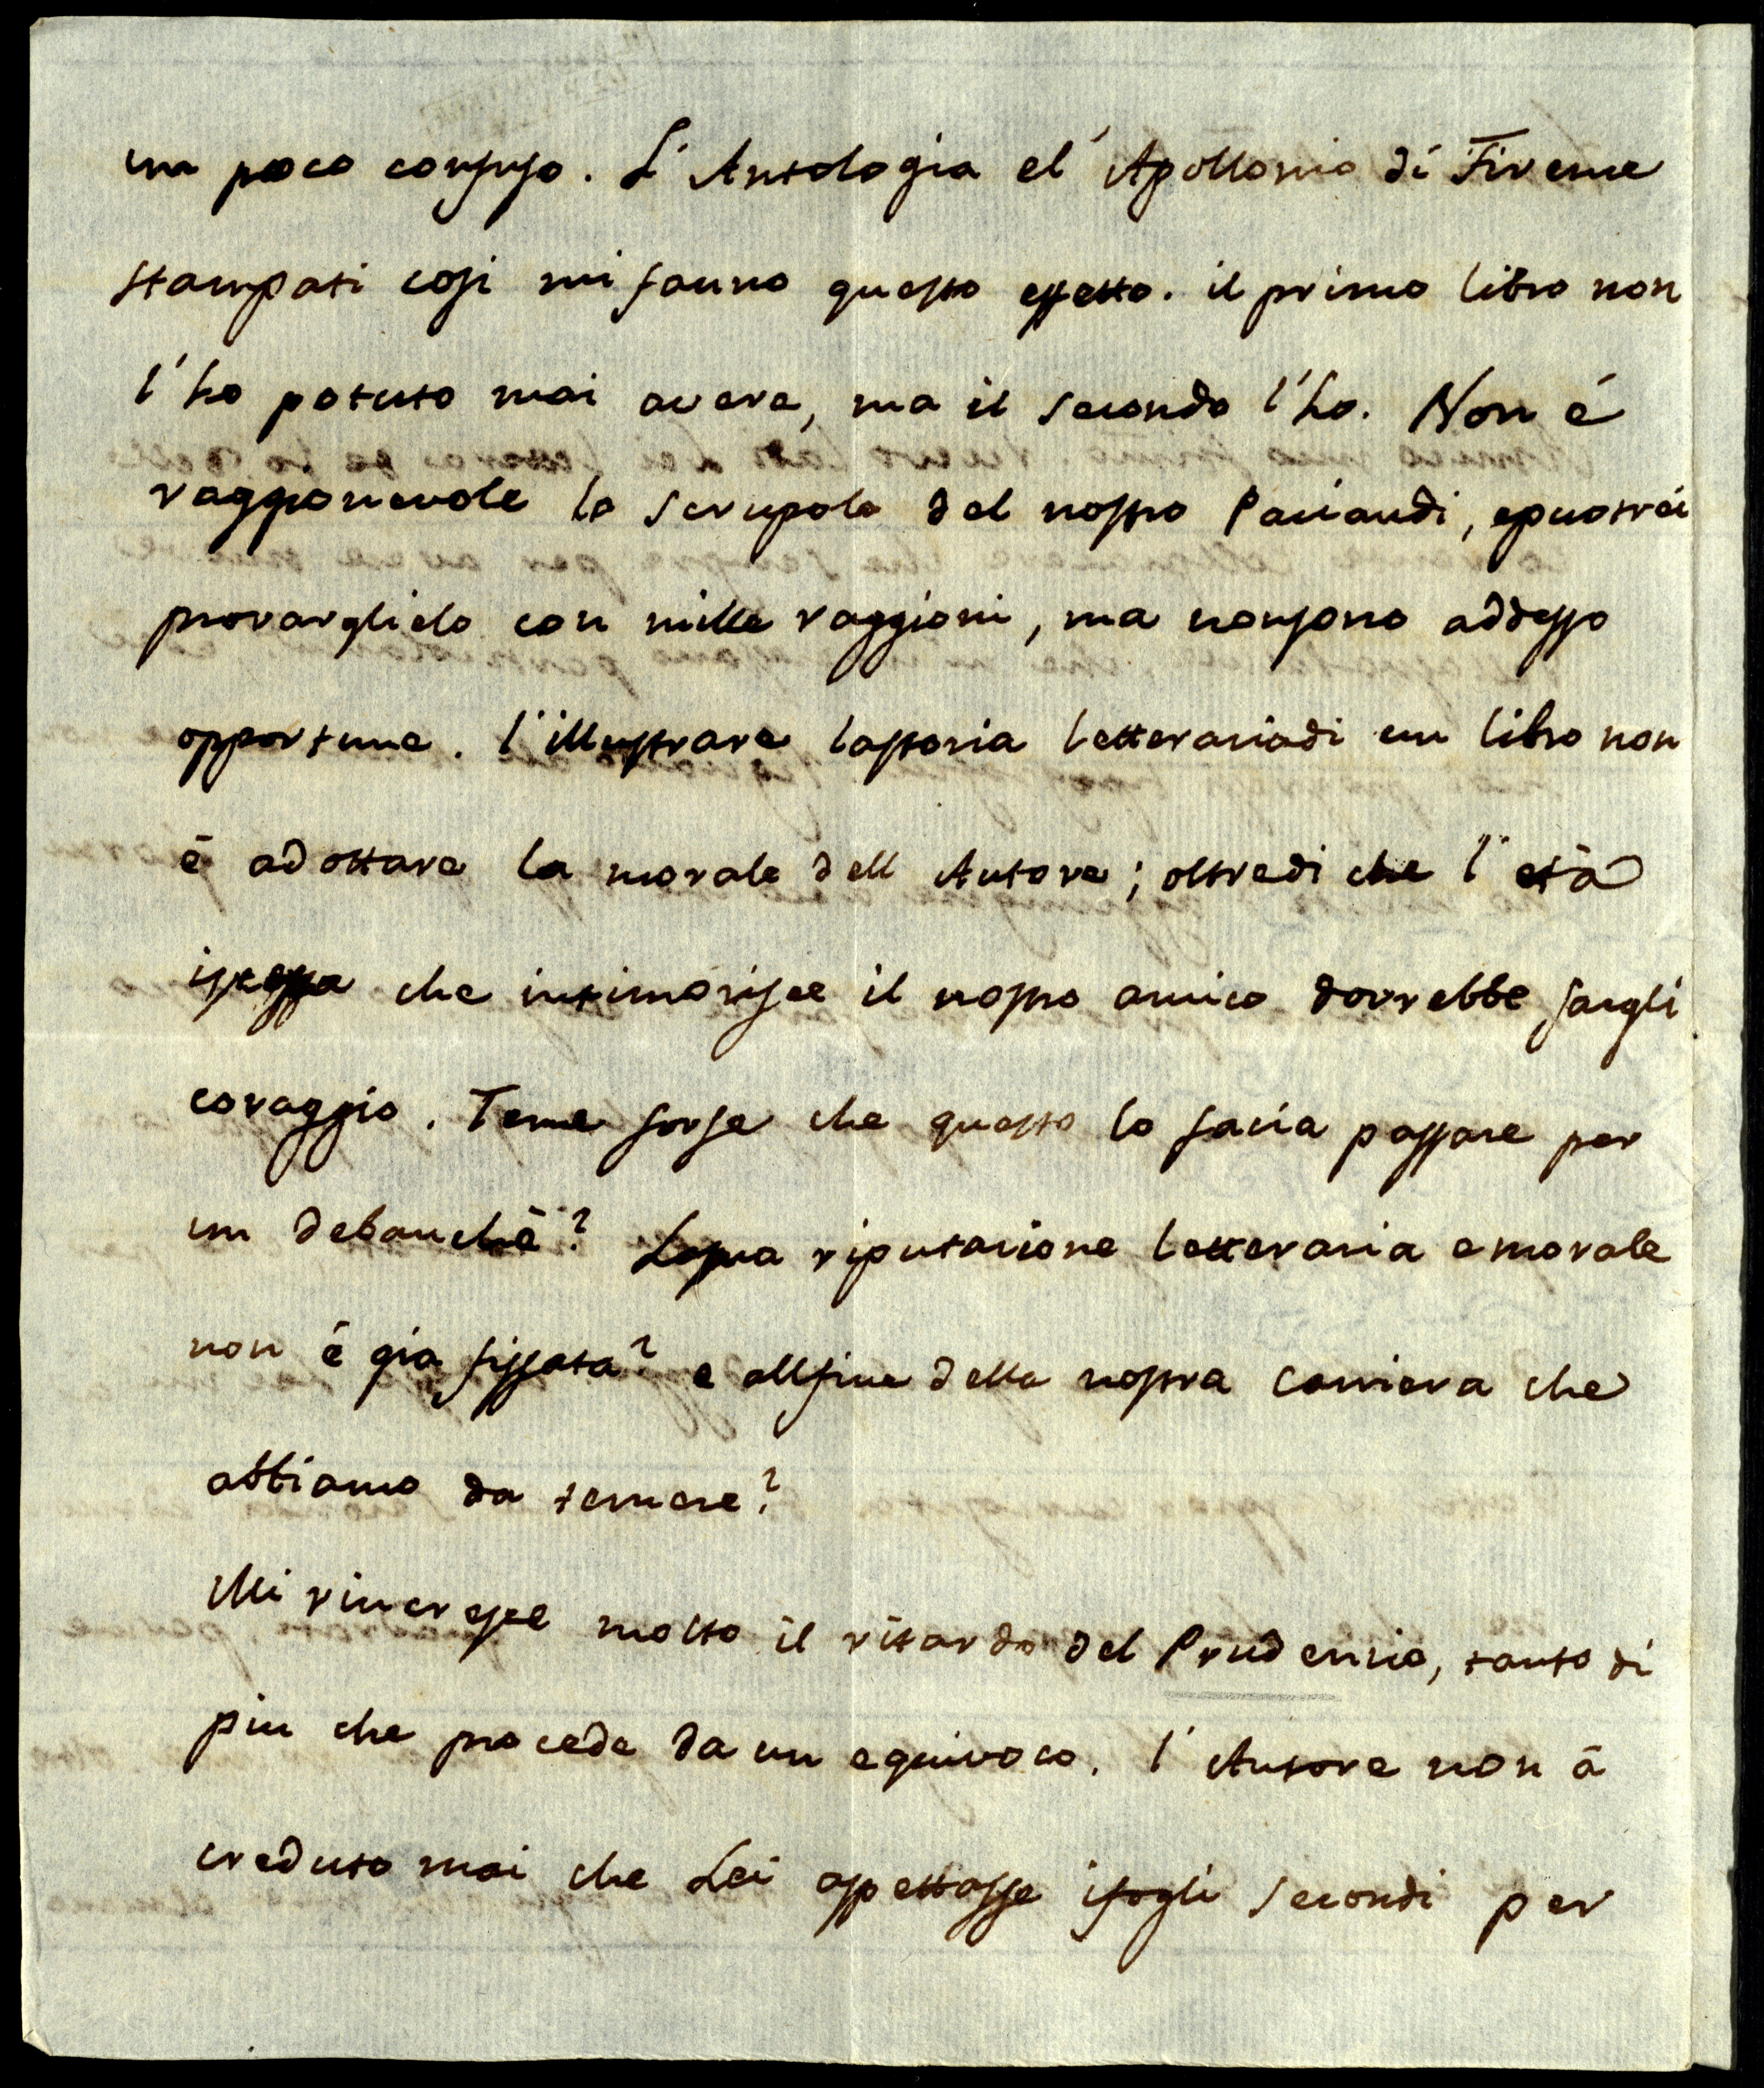 un poco confuso. L'Antologia el'Apollonio di Firenze
stampati cosi mi fanno questo effetto. il primo libro non
l'ho potuto mai avere, ma il secondo l'ho. Non é
raggionevole lo scrupolo del nostro Paciaudi, epuotrei
provarglielo con mille raggioni, ma nonsono addesso
opportune. l'illustrare lastoria letterariadi un libro non
é adottare la morale dell Autore; oltredi che l'età
istessa che intimorisce il nostro amico dovrebbe fargli
coraggio. Teme forse che questo lo facia passare per
un debauché? Lasua riputazione letteraria emorale
non é gia fissata? e allfine della nostra carriera che
abbiamo da temere?
Mi rincresce molto il ritardo del Prudenzio, tanto di
piu che procede da un equivoco. l'Autore non á
creduto mai che Lei aspettasse ifogli secondi per